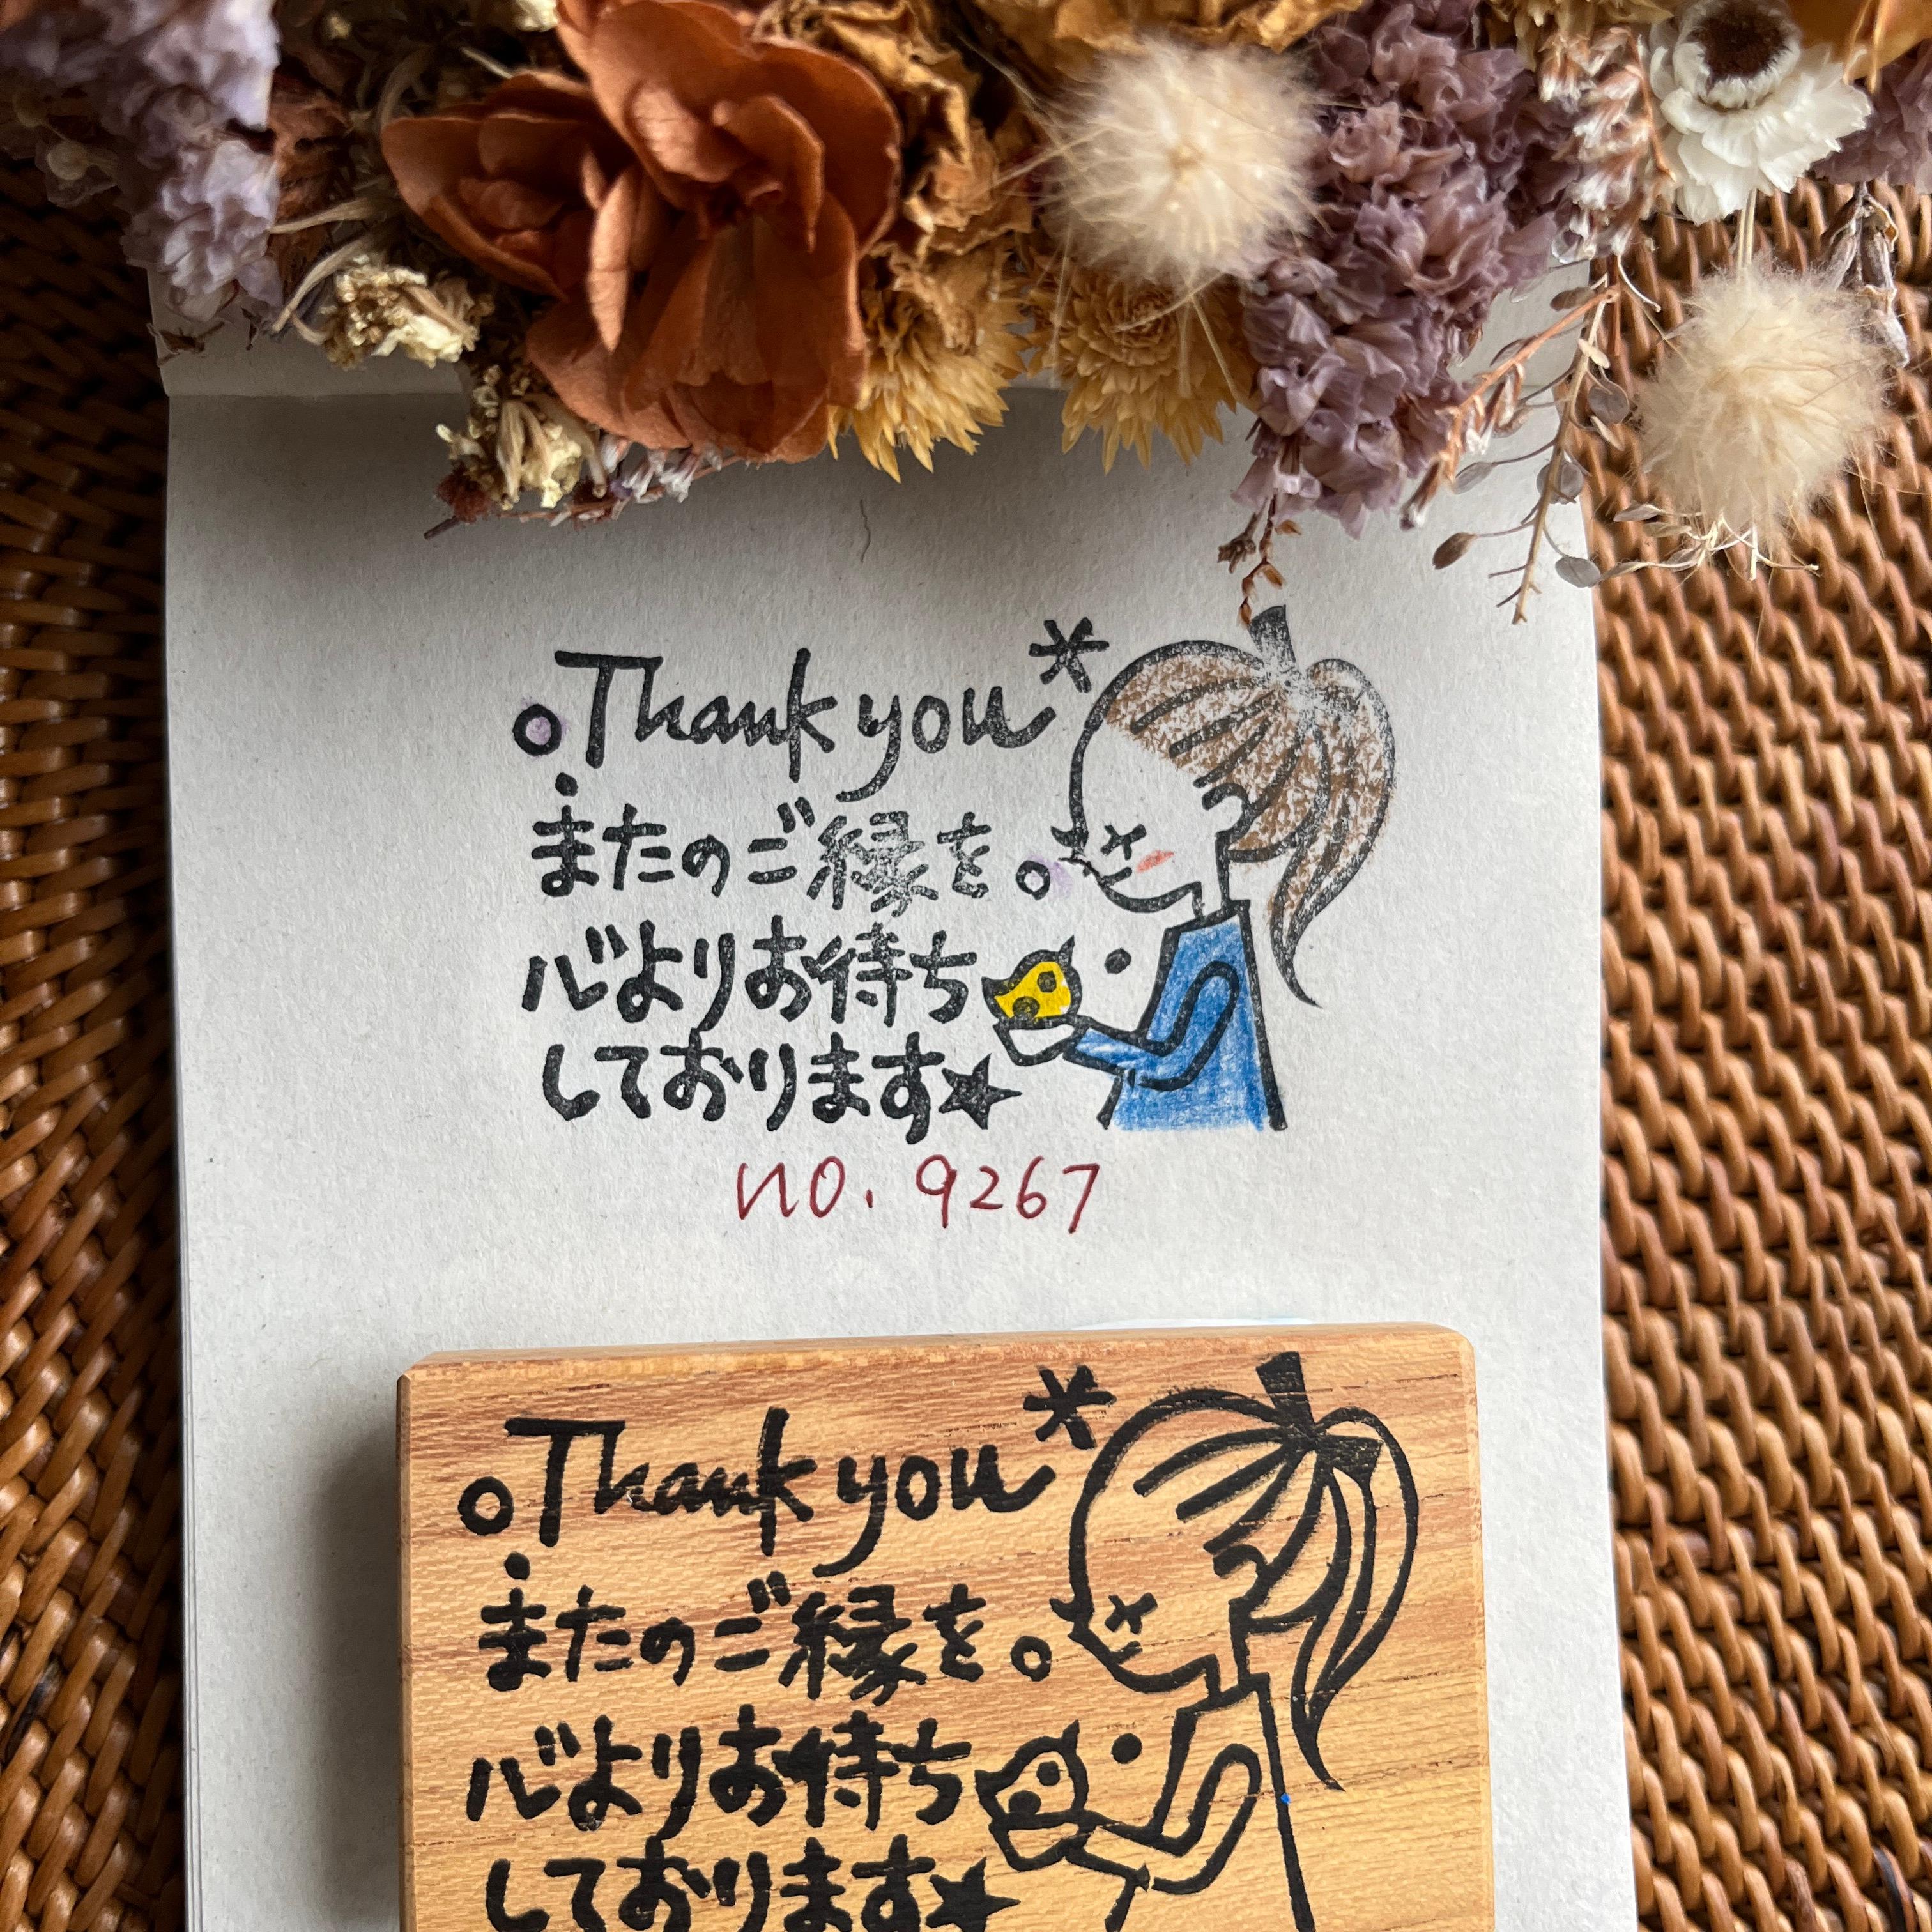 Thank you
またのご縁を
心よりお待ち
しております★
no. 9267
Thank you
またのご縁を
心よりお待ち
しております★